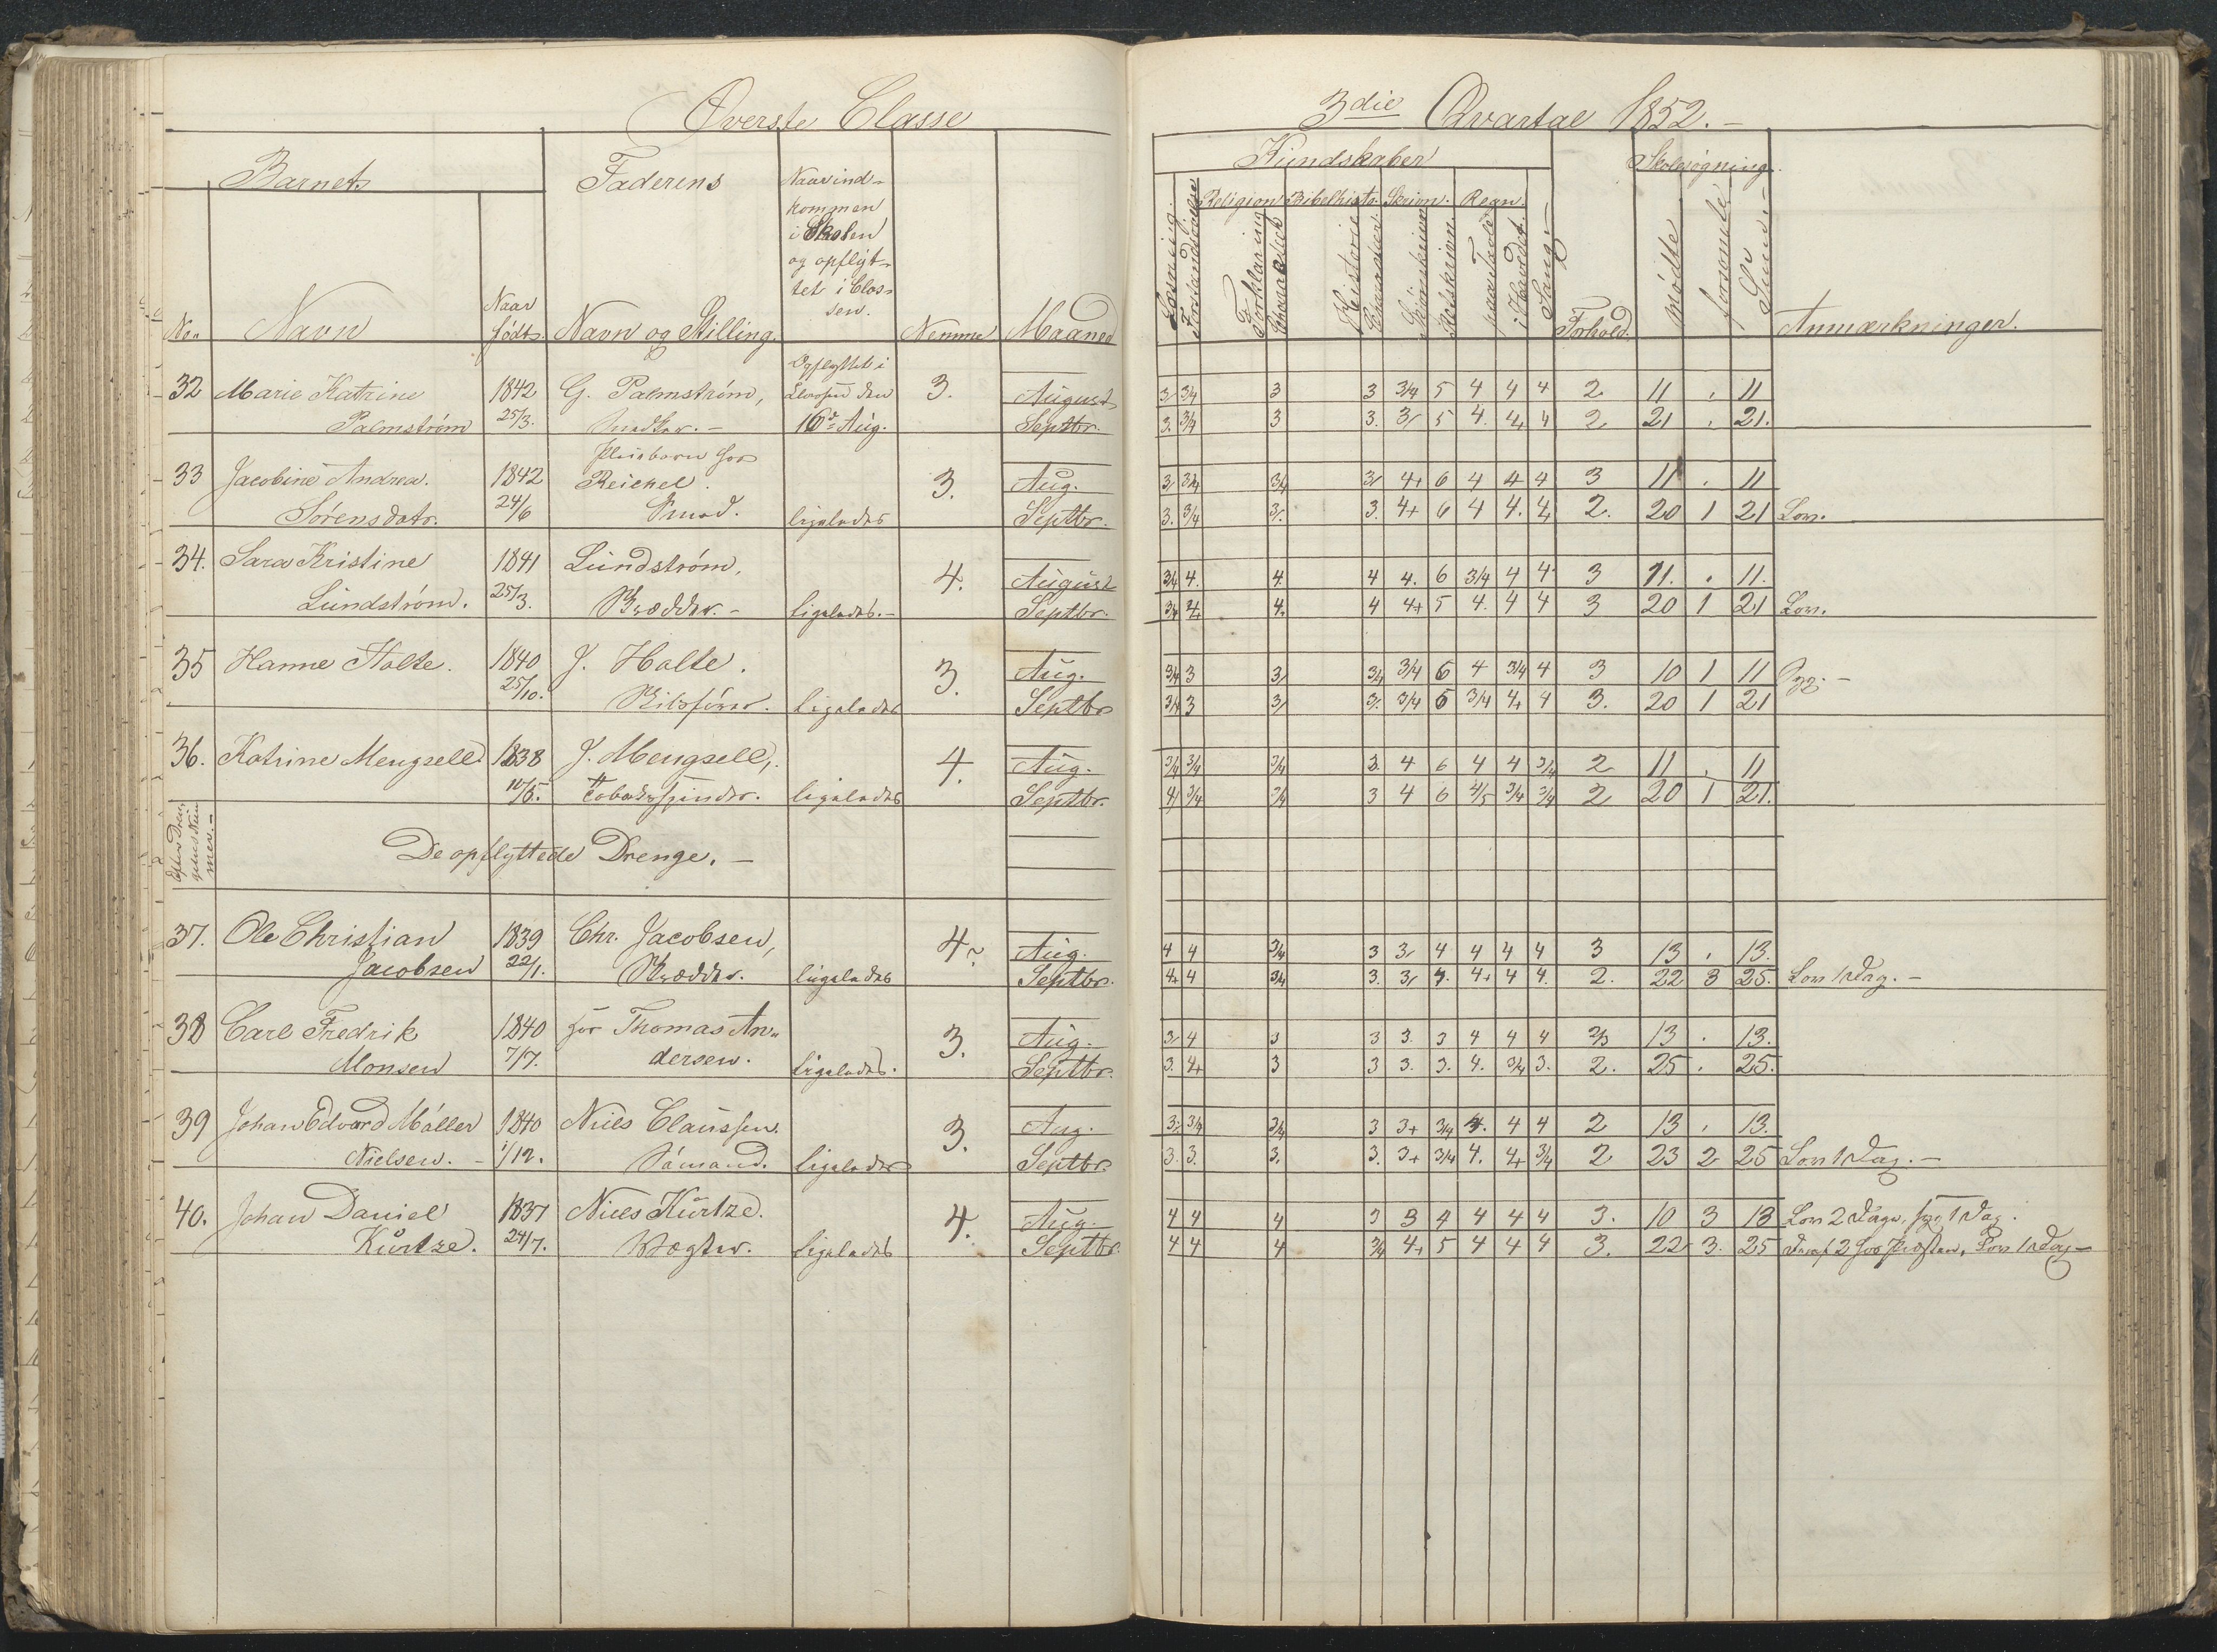 Øverste Classe
3die Qvartal 1852.-
Barnets
Faderens
Naar ind-
kommen
i Skolen
og opflyt-
tet i Clas-
sen.
Kundskaber
Skolesøgning.
Religion Bibelhist. Skrivn. Regn.
No. Navn
Naar
født.
Navn og Stilling.
Nemme Maaned
Forklaring
Historie
paa Tavle
i Hovedet.
Sang.-
Forhold.
mødte
forsømte
Anmærkninger.
32 Marie Katrine 1842 G. Palmstrøm, Opflyttet i 3. August 3 3/4 3 3 3/4 5 4 4 4 2 11 . 11
Palmstrøm 25/3. 16de Aug. Septbr. 3. 3/4 3 3. 3/ 5 4. 4 4 2 21 . 21.
33 Jacobine Andrea. 1842 Pleiebarn hos
Reichel. 3. Aug. 3/ 3/4 3/4 3/ 4+ 6 4 4 4 3 11 . 11
Sørensdatr. 24/6 Smed. ligeledes Septbr. 3. 3/4 3/. 3. 4+ 6 4 4. 4 2. 20 1 21 Lov.
34. Sara Kristine 1841 Lundstrøm, 4. August 3/4 4. 4. 4 4. 6 3/4 4 4 3 11. . 11.
Lundstrøm. 25/3. Skrædder.- ligeledes.- Septbr. 3/4 4 4. 4 4+ 5 4. 4 4 3 20 1 21 Lov.
35 Hanne Holte. 1840 J. Holte. 3. Aug. 3/4 3 3/ 3/4 3/4 6 4 3/4 4 3 10 1 11
25/10. ligeledes Septbr 3/4 3 3/ 3. 3/4 6 3/4 4 4 3. 20 1 21
36. Katrine Mengsell. 1838 J. Mengsell, 4. Aug. 3/4 3/4 3/4 3. 4 6 4 4 3/4 2 11 . 11
10/5. Tobakspinder. ligeledes Septbr. 4/ 3/4 3/4 3 4 6 4/5 3/4 3/4 2 20 1 21.
De opflyttede Drenge.-
37. Ole Christian 1839 Chr. Jacobsen, 4. Aug. 4 4 3/4 3 3/ 4 4 4 4 3 13 . 13.
Jacobsen 22/1. Skrædder. ligeledes Septbr. 4+ 4 3/4 3. 3/ 4. 4+ 4 4. 2. 22 3 25. Lov 1 Dag.-
38 Carl Fredrik 1840 hos Thomas An- 3. Aug. 3/ 4 3 3 3. 3 4 4 4 2/3 13 . 13.
Monsen 7/7. dersen. ligeledes. Septbr. 3. 4 3 3 3. 3. 4. 3/4 3. 2. 25 . 25.
39 Johan Edvard Møller 1840 Niels Claussen. 3. Aug. 3. 3/4 3/4 3 3+ 3/4 4. 4 4 2 13 . 13.
Nielsen.- 1/12. Sømand. ligeledes Septbr. 3. 3. 3. 3. 3+ 3/4 4. 4 3/4 2 23 2 25 Lov 1 Dag.-
40. Johan Daniel 1837 Niels Kurtze. 4. Aug. 4 4 4 3 3 4 4 4 4 3. 10 3 13 Lov 2 Dage, 1 Dag.
Kurtze. 24/7. Vægter. ligeledes Septbr. 4 4 4 3/4 4+ 5 4 4 4 3. 22 3. 25 2 hos Præsten, Lov 1 Dag-